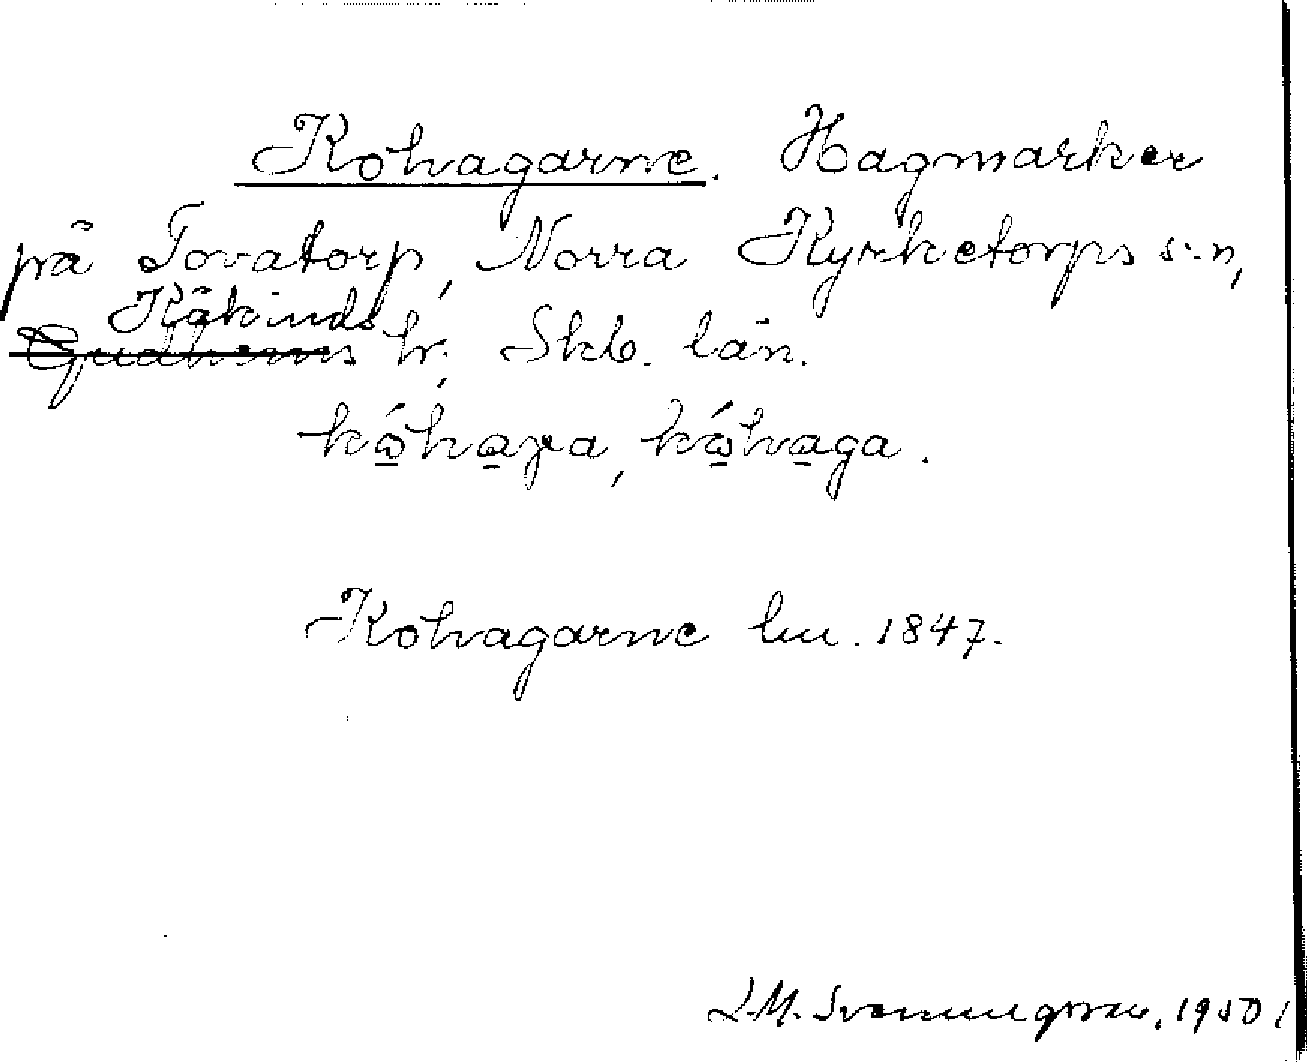 Kohagarne. Hagmarker
på Tovatorp, Norra Kyrketorps s:n,
Kåkinds
Gudhems hr, Skb. län.
kɷ́haɣa, kɷ́haga.
Kohagarne lm. 1847.
L.M. Svenungsson, 1950